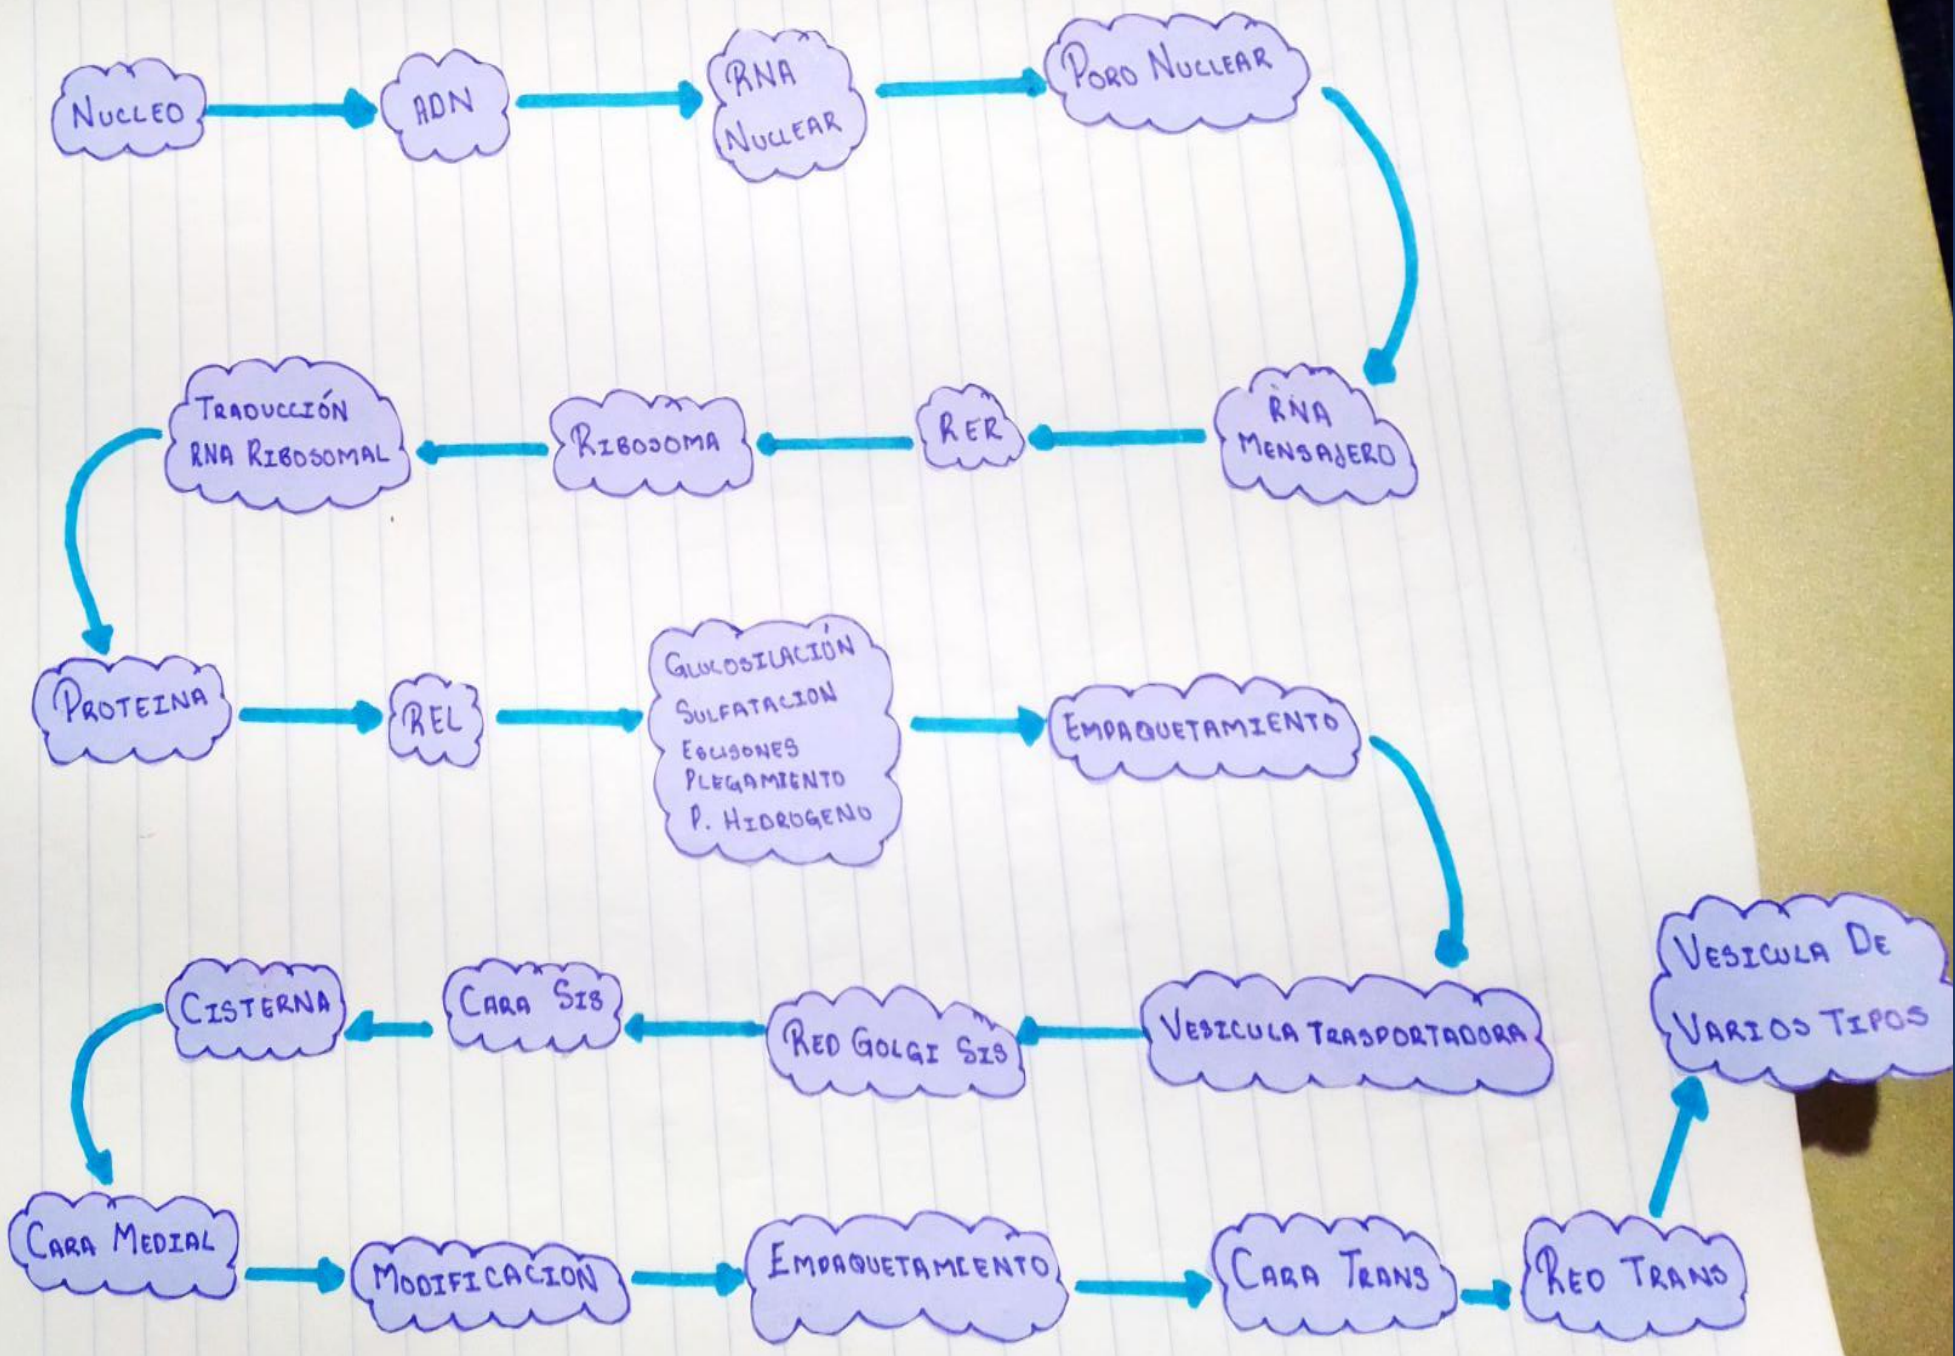 NUCLEO
ADN
RNA
NUCLEAR
PORO NUCLEAR
RNA
MENSAJERO
RER
RIBOSOMA
TRADUCCIÓN
RNA RIBOSOMAL
PROTEINA
REL
GLUCOSILACIÓN
SULFATACION
ESCISONES
PLEGAMIENTO
P. HIDROGENO
EMPAQUETAMIENTO
VESICULA TRASPORTADORA
RED GOLGI SIS
CARA SIS
CISTERNA
CARA MEDIAL
MODIFICACION
EMPAQUETAMIENTO
CARA TRANS
RED TRANS
VESICULA DE
VARIOS TIPOS